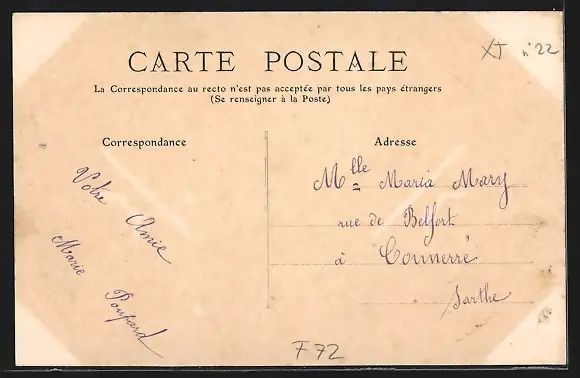 XJ n° 22
CARTE POSTALE
La Correspondance au recto n'est pas acceptée par tous les pays étrangers
(Se renseigner à la Poste)
Correspondance
Votre Amie
Marie Poupard
Adresse
Mlle Maria Mary
rue de Belfort
à Connerré
Sarthe
F72